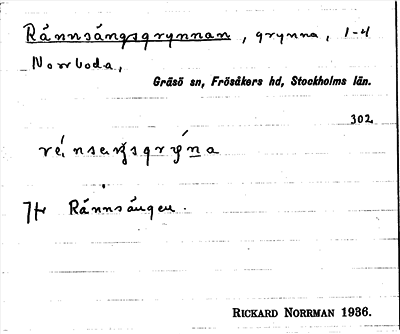 Rånnsångsgrynnan, grynna, 1-4
Norrboda,
Gräsö sn, Frösåkers hd, Stockholms län.
302
Rånnsången.
RICKARD NORRMAN 1936.